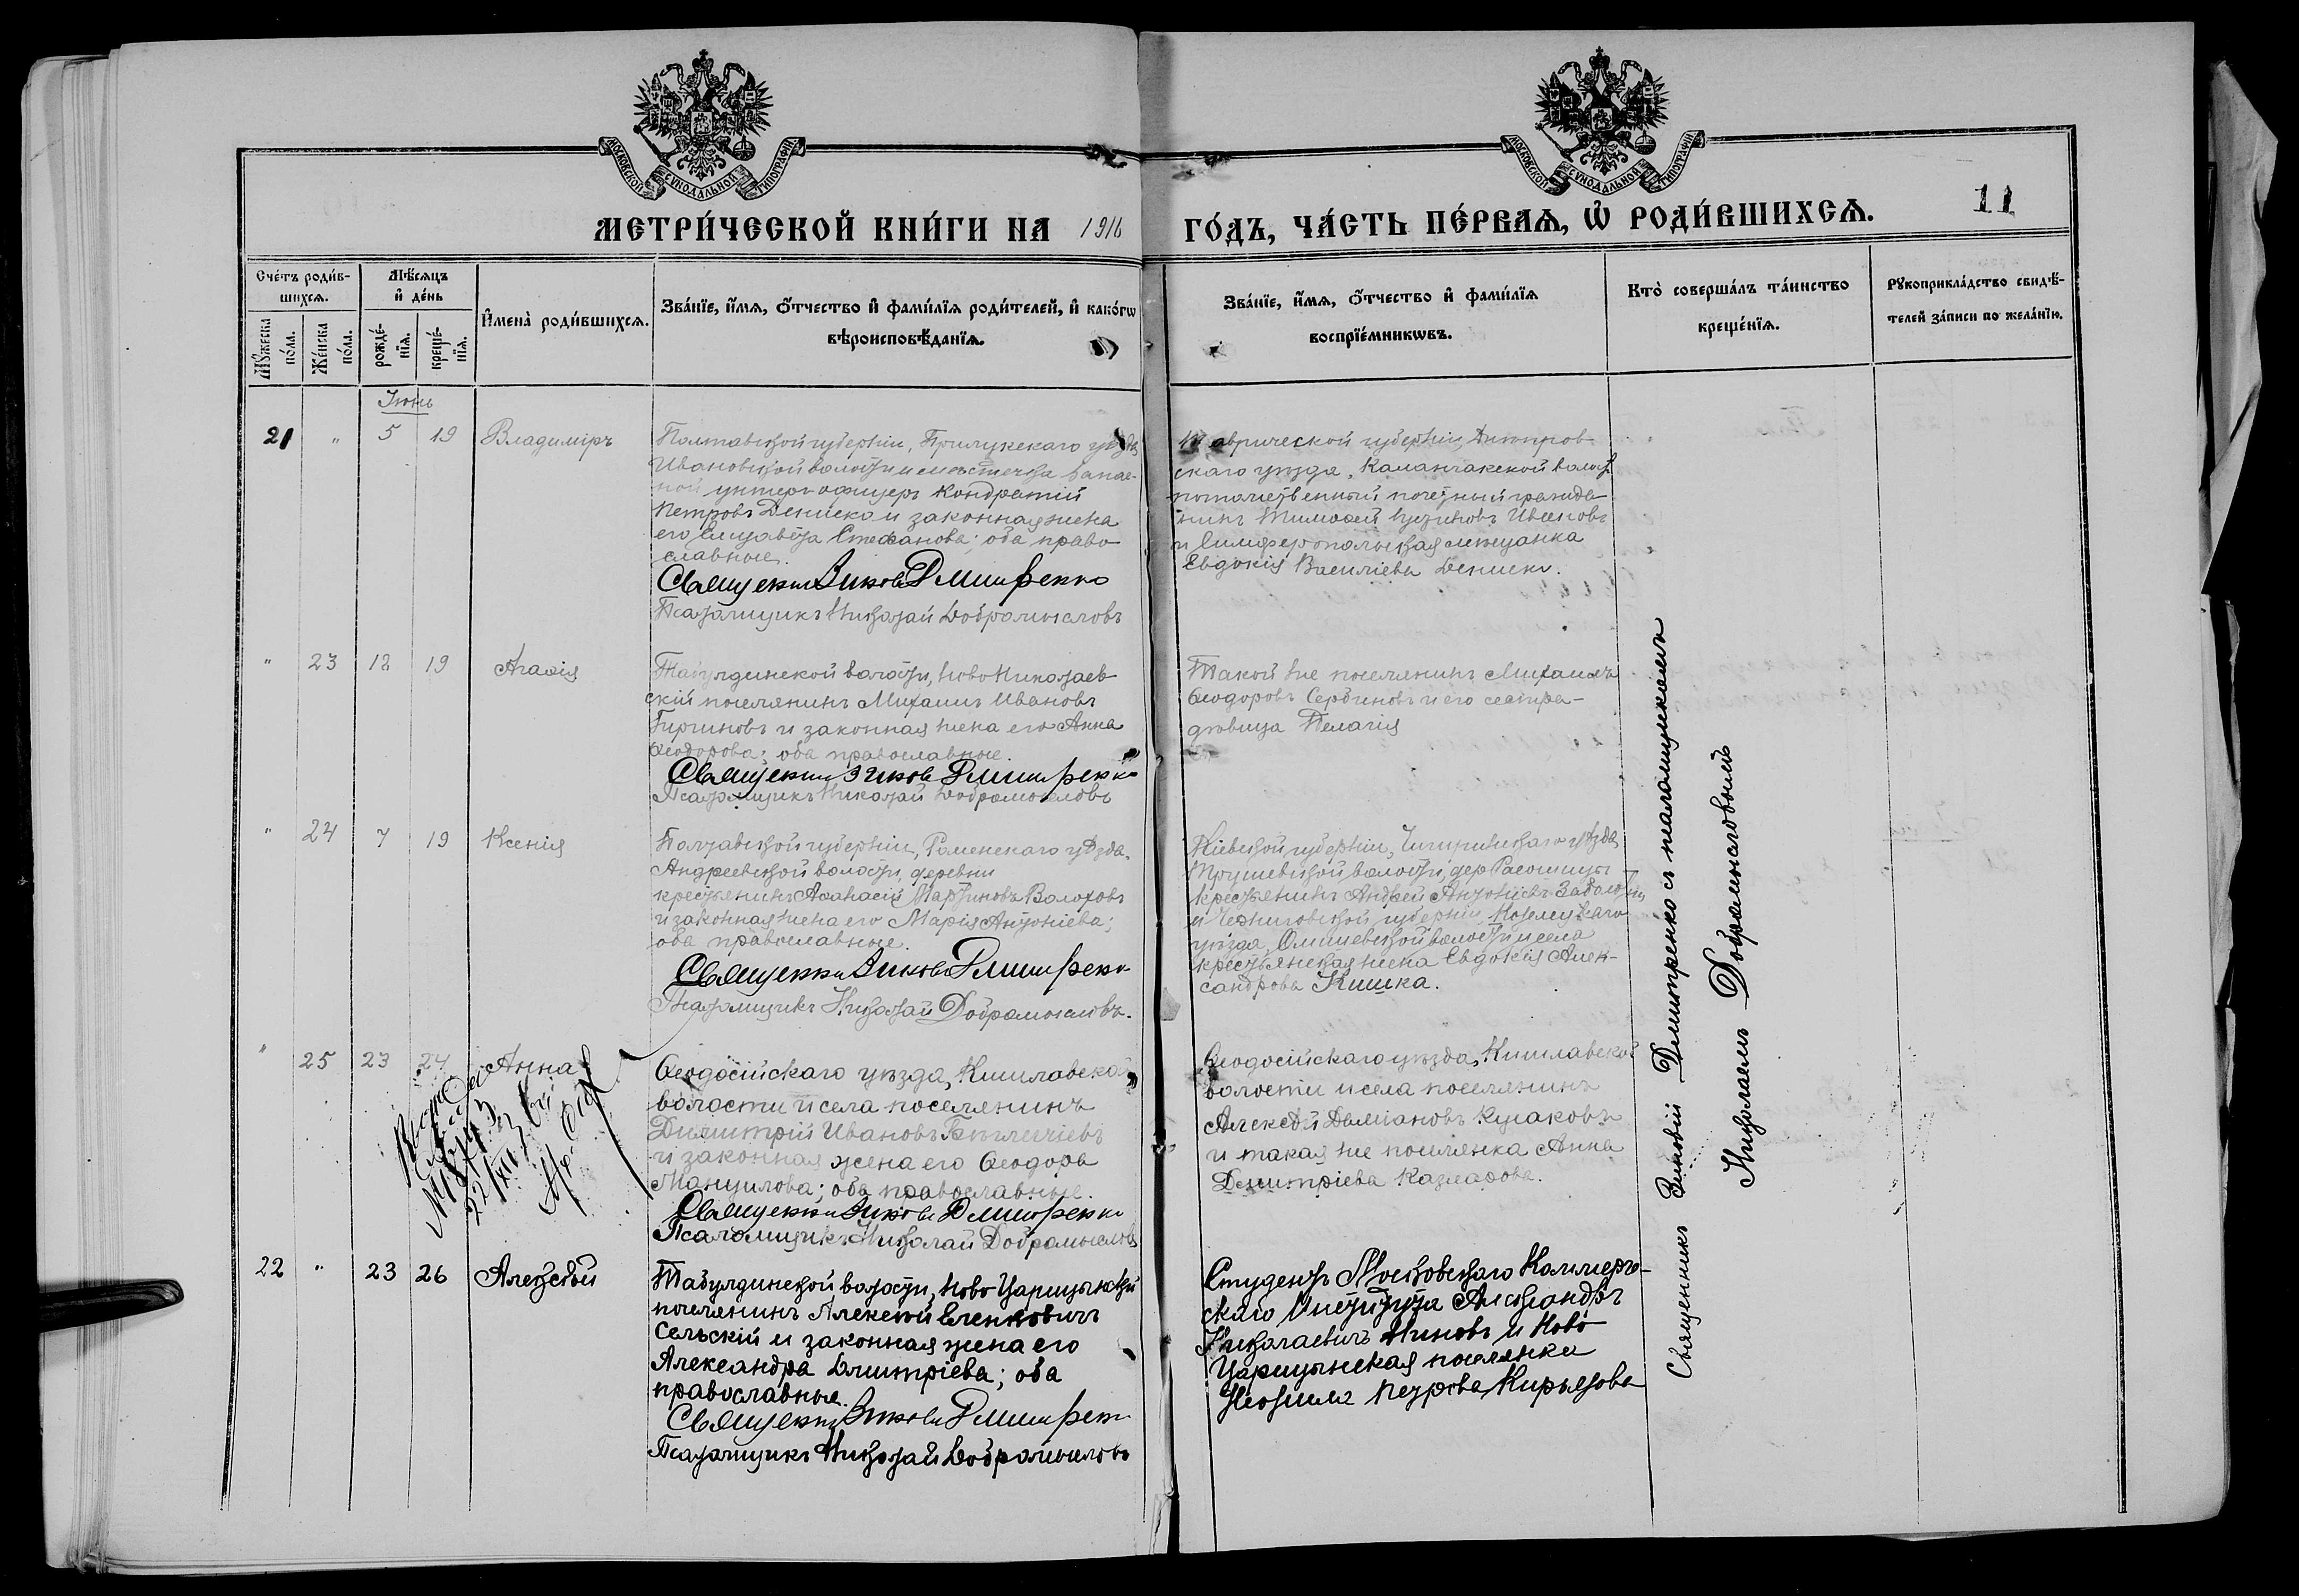 МОСКОВСКОЙ СѴНОДАЛЬНОЙ ТИПОГРАФІИ
МОСКОВСКОЙ СѴНОДАЛЬНОЙ ТИПОГРАФІИ
МЕТРИ́ЧЕСКОЙ КНИ́ГИ НА 1916 ГО́ДЪ, ЧА́СТЬ ПЕ́РВАѦ, Ѡ҆ РОДИ́ВШИХСѦ.
11
Сче́тъ роди́в-
шихсѧ.
Мѣ́сѧцъ
и҆ де́нь
И҆мена̀ роди́вшихсѧ.
Зва́нїе, и҆́мѧ, о҆́тчество и҆ фами́лїѧ роди́телей, и҆ како́гѡ
вѣроисповѣ́данїѧ.
Зва́нїе, и҆́мѧ, о҆́тчество и҆ фами́лїѧ
воспрїе́мникѡвъ.
Кто̀ соверша́лъ та́инство
креще́нїѧ.
Рꙋкоприкла́дство свидѣ́-
телей за́писи по жела́нїю.
Мꙋ́жеска
по́ла.
Же́нска
по́ла.
рожде́-
нїѧ.
креще́-
нїѧ.
Іюнь
21 " 5 19 Владиміръ
Полтавской губерніи, Прилукскаго уѣзда
Ивановской волости и мѣстечка запас-
ной унтеръ-офицеръ Кондратій
Петровъ Дениско и законная жена
его Елисавета Стефанова; оба право-
славные.
Священникъ Зиновій Димитренко
Псаломщикъ Николай Добромысловъ
Таврической губерніи, Днѣпров-
скаго уѣзда, Каланчакской волост.
потомственный почетный гражда-
нинъ Тимофей Ивановъ
и Симферопольская мѣщанка
Евдокія Василіева Дениско.
" 23 18 19 Агафія
Табулдинской волости, Ново Николаев-
скій поселянинъ Михаилъ Ивановъ
Гиргиновъ и законная жена его Анна
Ѳеодорова; оба православные.
Священникъ Зиновій Димитренко
Псаломщикъ Николай Добромысловъ
Такой же поселянинъ Михаилъ
Ѳеодоровъ Сербиновъ и его сестра-
дѣвица Пелагія
" 24 7 19 Ксенія
Полтавской губерніи, Роменскаго уѣзда,
Андреевской волости, деревни
крестьянинъ Аѳанасій Мартиновъ Волоховъ
и законная жена его Марія Антоніева;
оба православные.
Священникъ Зиновій Димитренко
Псаломщикъ Николай Добромысловъ.
Кіевской губерніи, Чигиринскаго уѣзда
Трушевской волости, дер Расошицы
крестьянинъ Андрей Антоніевъ
и Черниговской губерніи, Козелецкаго
уѣзда, Олишевской волости и села
крестьянская жена Евдокія Алек-
сандрова Кишка.
" 25 23 24 Анна
Ѳеодосійскаго уѣзда, Кишлавской
волости и села поселянинъ
Димитрій Ивановъ
и законная жена его Ѳеодора
Мануилова; оба православные.
Священникъ Зиновій Димитренко
Псаломщикъ Николай Добромысловъ
Ѳеодосійскаго уѣзда, Кишлавской
волости и села поселянинъ
Алексѣй Даміановъ Кулаковъ
и такая же поселянка Анна
Димитріева Казларова.
22 " 23 26 Алексѣй
Табулдинской волости, Ново Царицынскій
поселянинъ Алексѣй
Сельскій и законная жена его
Александра Димитріева; оба
православные.
Священникъ Зиновій Димитренко
Псаломщикъ Николай Добромысловъ
Студентъ Московскаго Коммерче-
скаго Института Александръ
Николаевичъ Миновъ и Ново
Царицынская поселянка
Неонила Петрова Кирьязова
Священникъ Зиновій Димитренко съ псаломщикомъ
Николаемъ Добромысловымъ